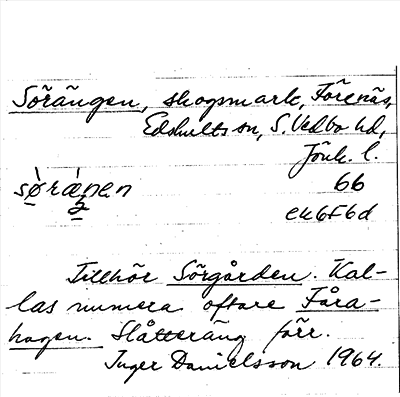 Sörängen, skogsmark, Förenäs,
Edshults sn, S. Vedbo hd,
Jönk. l.
66
ek6f6d
Tillhör Sörgården. Kal-
las numera oftare Fåra-
hagen. Slåtteräng förr.
Inger Danielsson 1964.